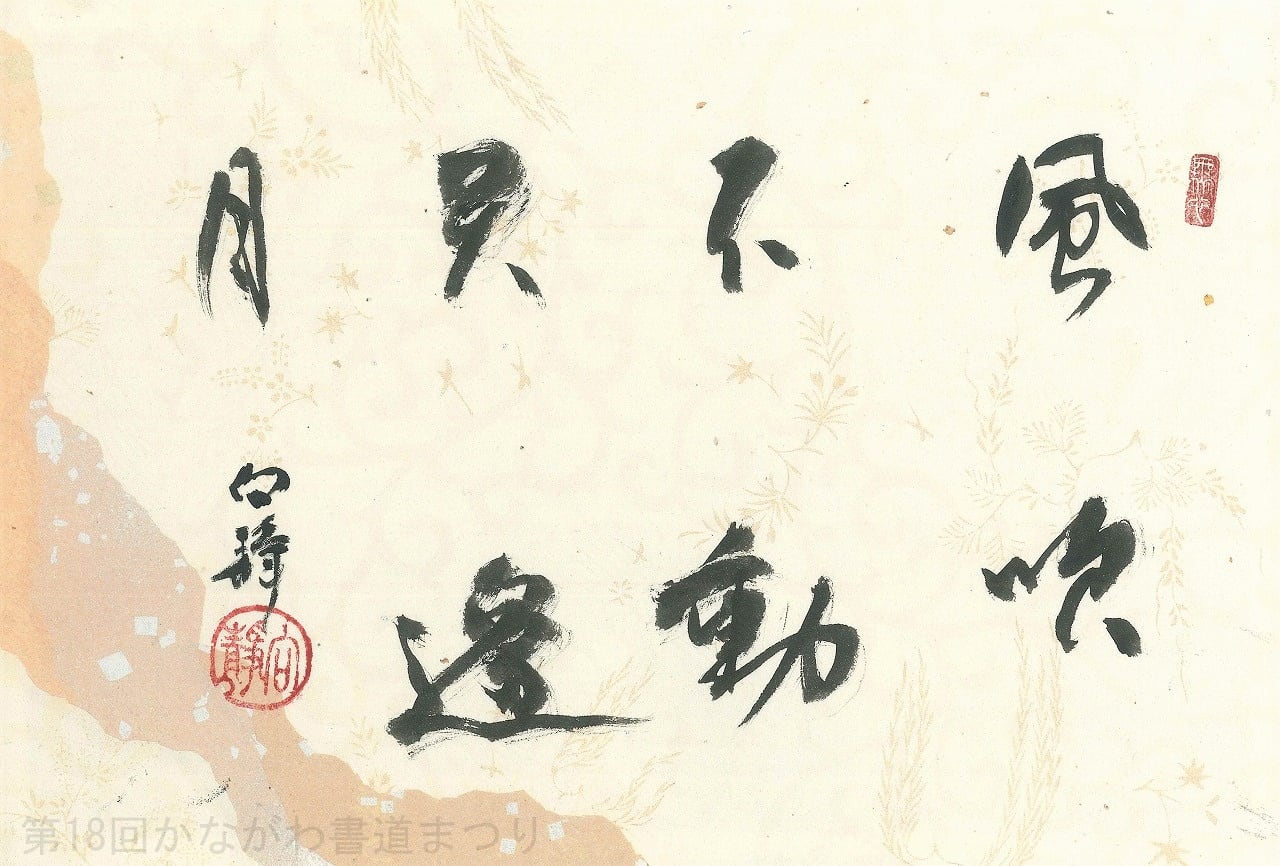 風吹
不動
天邊
月
向靜
第18回かながわ書道まつり